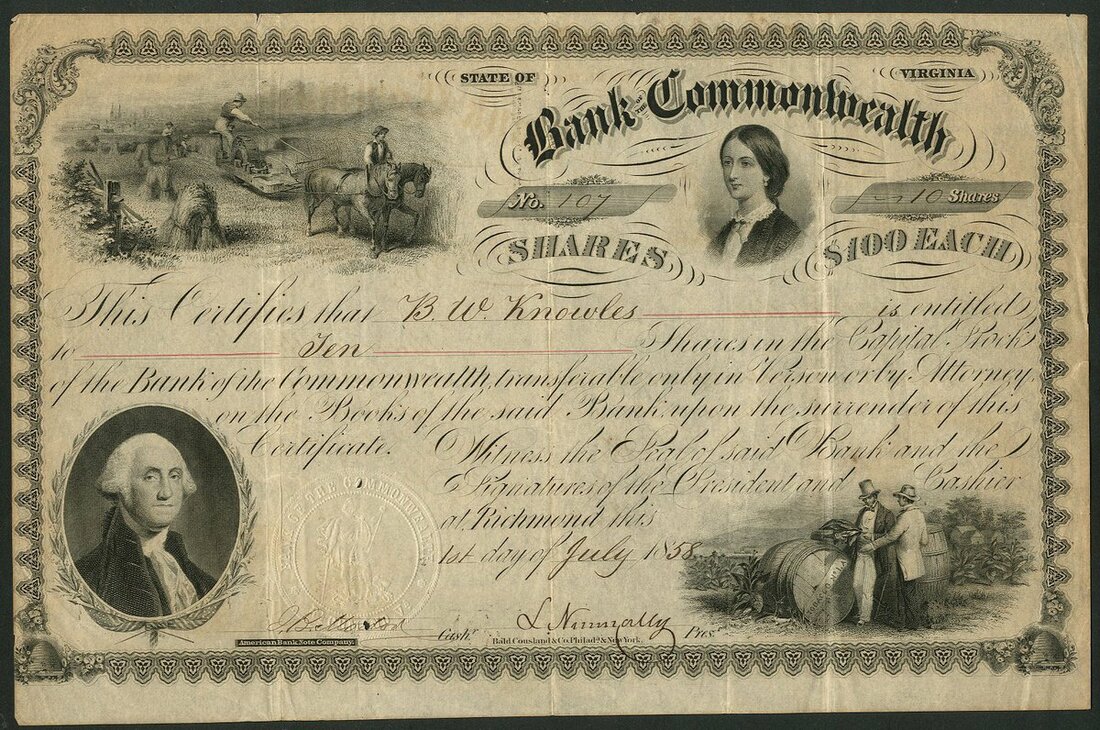 STATE OF VIRGINIA
Bank OF THE Commonwealth
No. 107
10 Shares
SHARES $100 EACH
This Certifies that B. W. Knowles is entitled
to Ten Shares in the Capital Stock
of the Bank of the Commonwealth, transferable only in Person or by Attorney
on the Books of the said Bank upon the surrender of this
Certificate. Witness the Seal of said Bank and the
Signatures of the President and Cashier
at Richmond this
1st day of July 1858
Cashr
L. Nunnally Prest
American Bank Note Company.
Bald, Cousland & Co. Philada. & New York.
BANK OF THE COMMONWEALTH VA